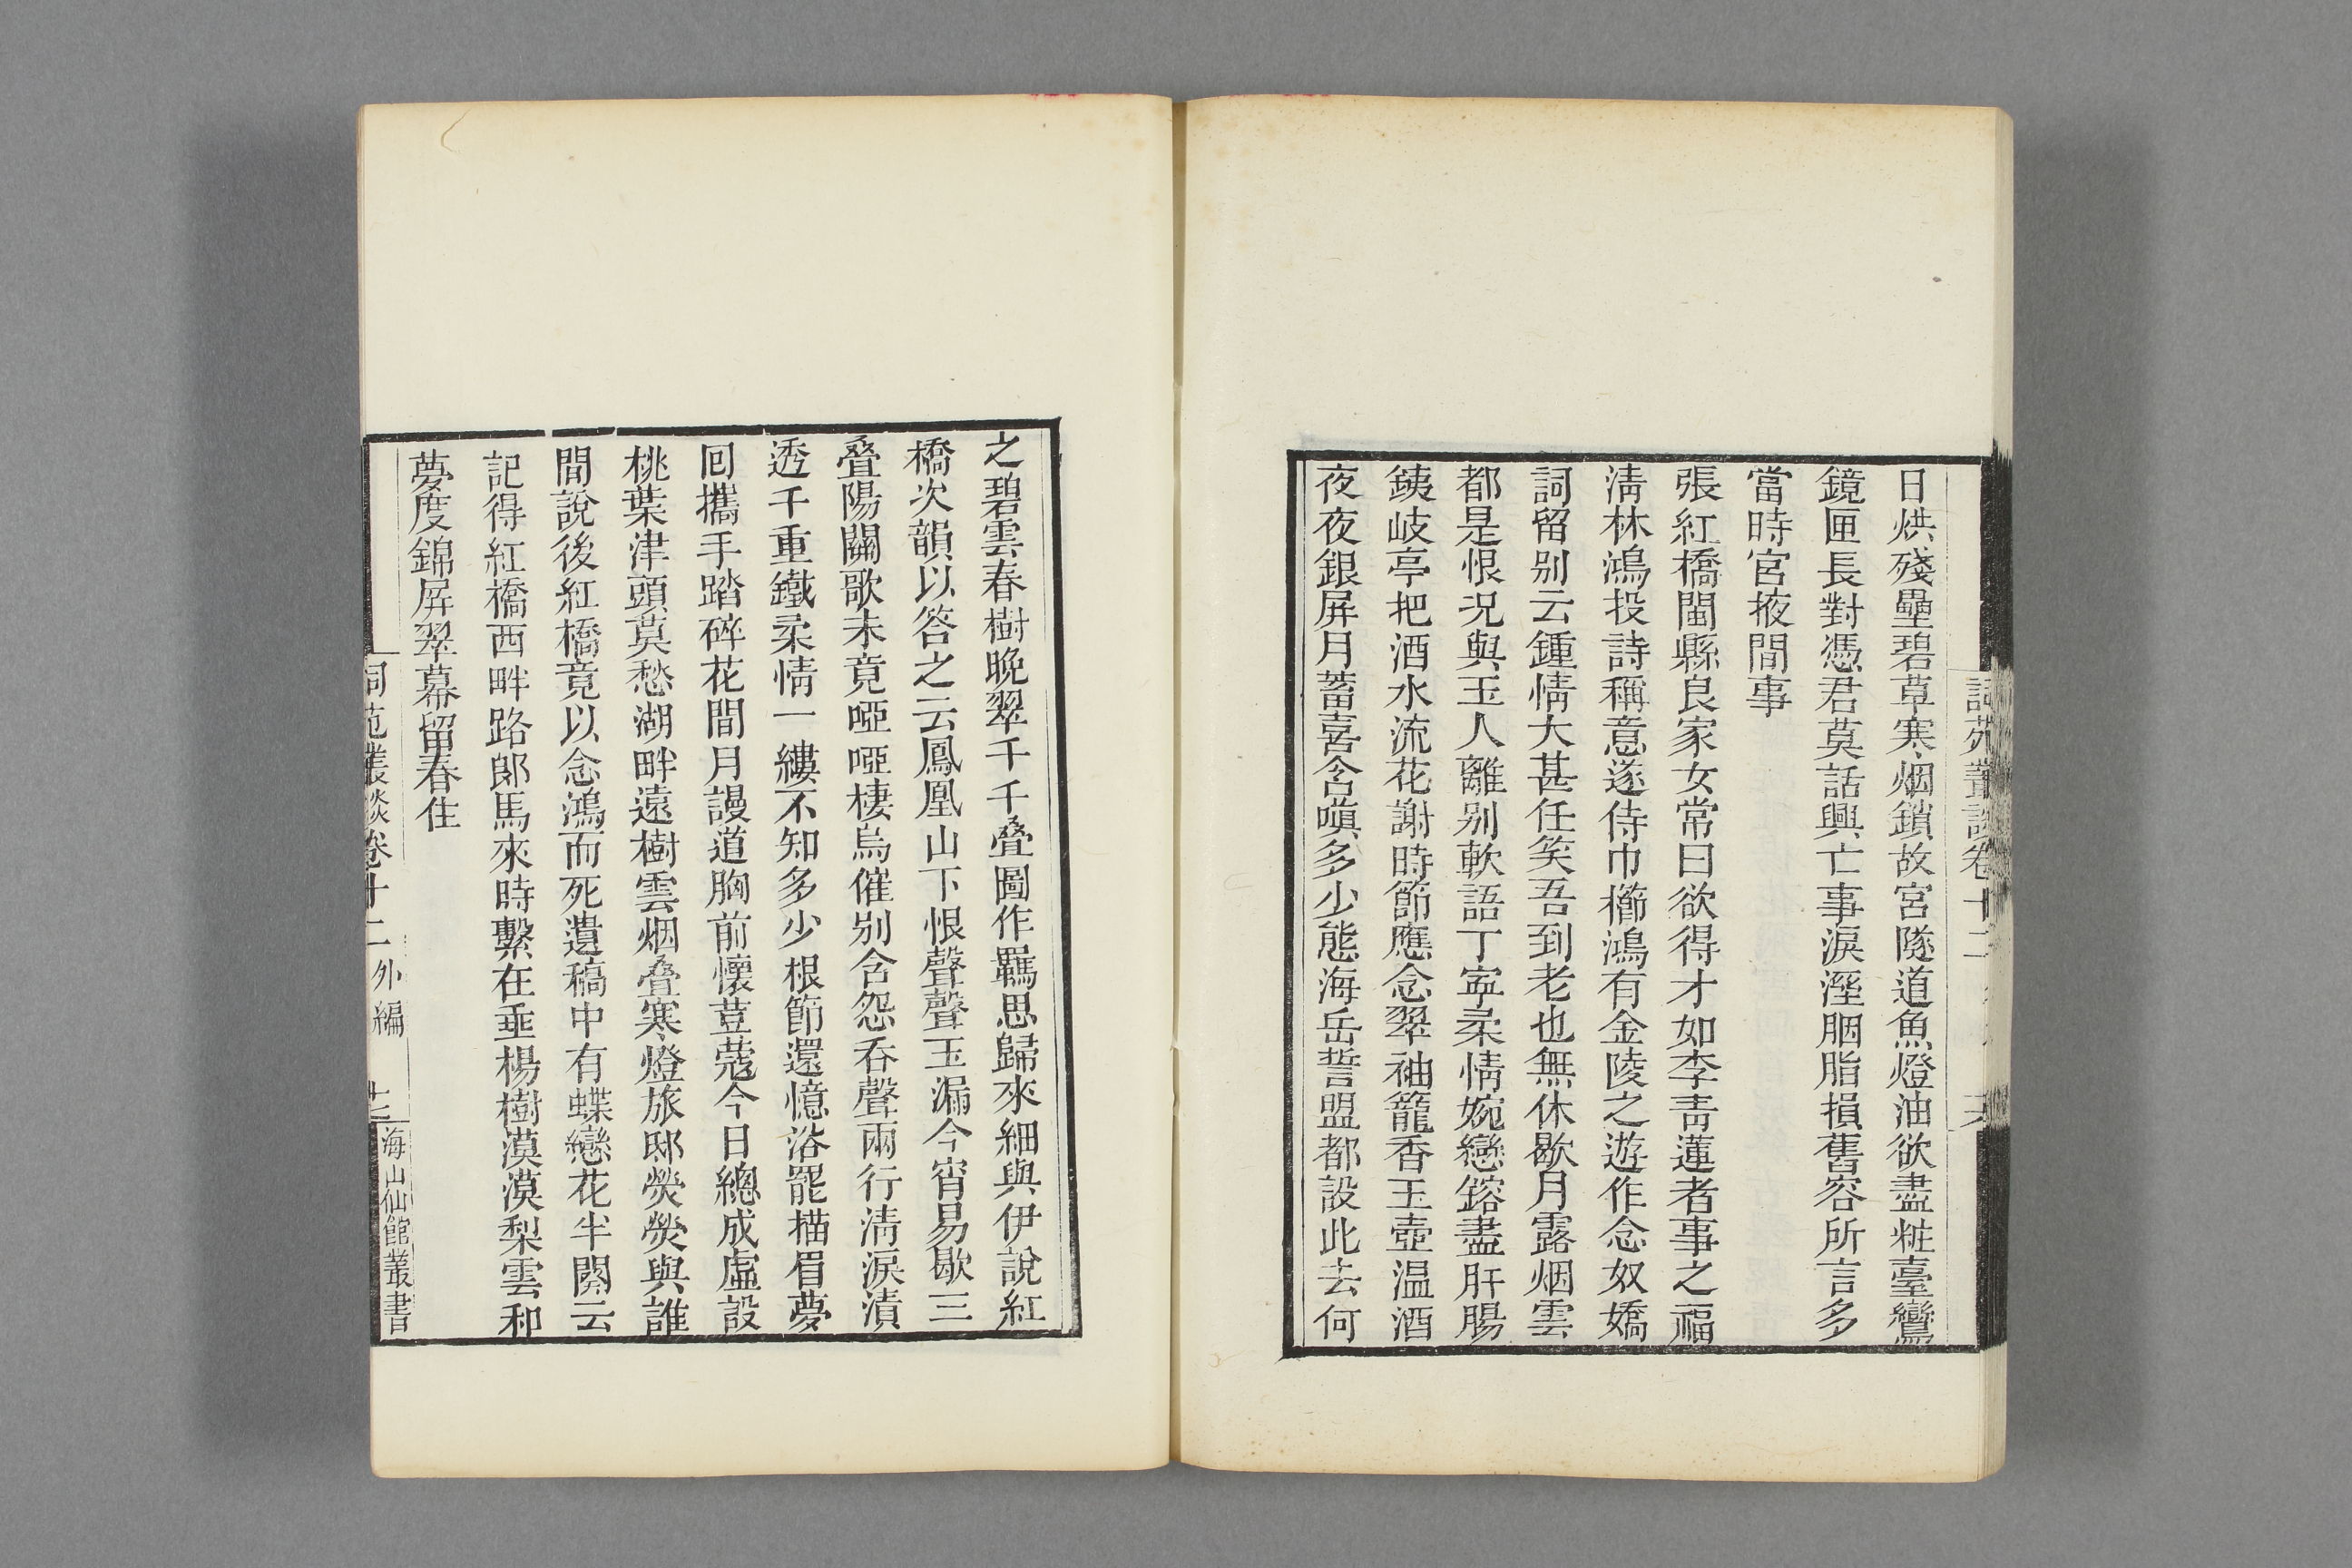 日烘殘壘碧草寒烟鎖故宮隧道魚燈油欲盡粧臺鸞
鏡匣長對憑君莫話興亡事淚溼胭脂損舊容所言多
當時宮掖間事
張紅橋閩縣良家女常曰欲得才如李靑蓮者事之福
淸林鴻投詩稱意遂侍巾櫛鴻有金陵之遊作念奴嬌
詞留别云鍾情大甚任笑吾到老也無休歇月露烟雲
都是恨況與玉人離别軟語丁寧柔情婉戀鎔盡肝腸
銕岐亭把酒水流花謝時節應念翠袖籠香玉壺温酒
夜夜銀屏月蓄喜含嗔多少態海岳誓盟都設此去何
之碧雲春樹晚翠千千叠圖作羈思歸來細與伊說紅
橋次韻以答之云鳳凰山下恨聲聲玉漏今宵易歇三
叠陽關歌未竟啞啞棲烏催别含怨吞聲兩行淸淚漬
透千重鐵柔情一縷不知多少根節還憶浴罷描眉夢
囘攜手踏碎花間月謾道胸前懷荳蔻今日總成虛設
桃葉津頭莫愁湖畔遠樹雲烟叠寒燈旅邸熒熒與誰
閒說後紅橋竟以念鴻而死遺稿中有蝶戀花半闋云
記得紅橋西畔路郎馬來時繫在垂楊樹漠漠梨雲和
夢度錦屏翠幕留春住
詞苑叢談卷十二 外編 海山仙館叢書